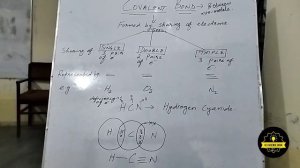 COVALENT BOND → Between
non-metals
Formed by sharing of electrons
Sharing of SINGLE DOUBLE TRIPLE
1 pair of e⁻ 2 pairs of e⁻ 3 pairs of e⁻
Represented by — = ≡
e.g H₂ O₂ N₂
HCN → Hydrogen Cyanide
H C N
H — C ≡ N